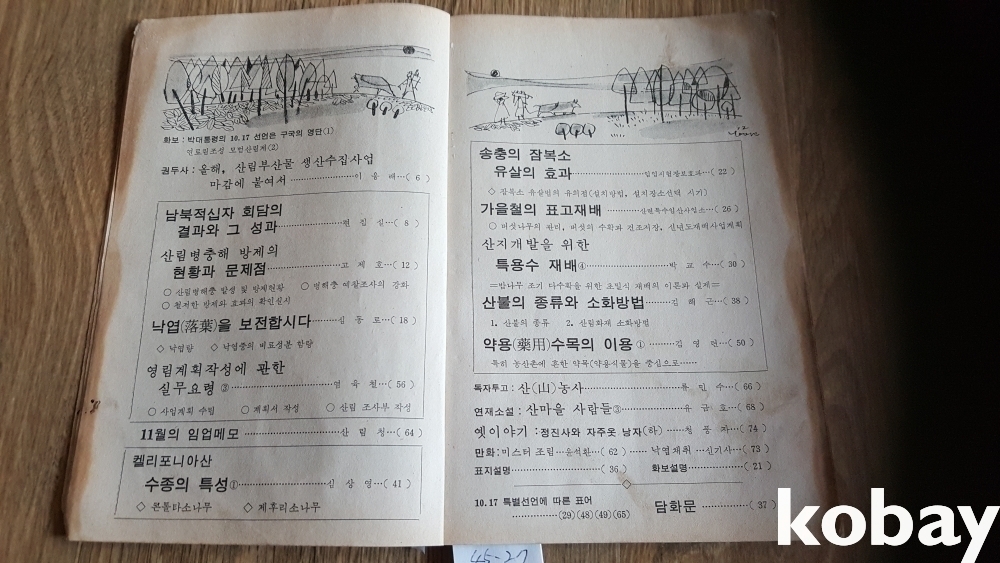 화보 : 박대통령의 10.17 선언은 구국의 영단(1)
연료림조성 모범산림계(2)
권두사 : 올해, 산림부산물 생산수집사업
마감에 붙여서 ( 6 )
남북적십자 회담의
결과와 그 성과 편 집 실…( 8 )
산림병충해 방제의
현황과 문제점 고 제 호…( 12 )
○ 산림병해충 발생 및 방제현황 ○ 병해충 예찰조사의 강화
○ 철저한 방제와 효과의 확인실시
낙엽(落葉)을 보전합시다 심 동 로…( 18 )
◇ 낙엽량 ◇ 낙엽중의 비료성분 함량
영림계획작성에 관한
실무요령 ③ 연 육 철…( 56 )
○ 사업계획 수립 ○ 계획서 작성 ○ 산림 조사부 작성
11월의 임업메모 산 림 청…( 64 )
켈리포니아산
수종의 특성① 심 상 영…( 41 )
◇ 콘톨타소나무 ◇ 제후리소나무
송충의 잠복소
유살의 효과 임업시험장보호과…( 22 )
◇ 잠복소 유살법의 유의점(설치방법, 설치장소선택 시기)
가을철의 표고재배 산련특수임산사업소…( 26 )
○ 버섯나무의 관리, 버섯의 수확과 건조저장, 신년도재배사업계획
산지개발을 위한
특용수 재배④ 박 교 수…( 30 )
=밤나무 조기 다수확을 위한 조밀식 재배의 이론과 실제=
산불의 종류와 소화방법 김 해 근…( 38 )
1. 산불의 종류 2. 산림화재 소화방법
약용(藥用)수목의 이용① 김 영 연…( 50 )
특히 농산촌에 흔한 약목(약용식물)을 중심으로……
독자투고 : 산(山)농사 류 민 수…( 66 )
연재소설 : 산마을 사람들③ 유 금 호…( 68 )
옛이야기 : 정진사와 자주옷 남자(하) 청 풍 자…( 74 )
만화:미스터 조림…윤석환…( 62 ) 낙엽채취…신기사…( 73 )
표지설명 ( 36 ) 화보설명 ( 21 )
10.17 특별선언에 따른 표어 담화문 ( 37 )
(29)(48)(49)(65)
45-27
kobay